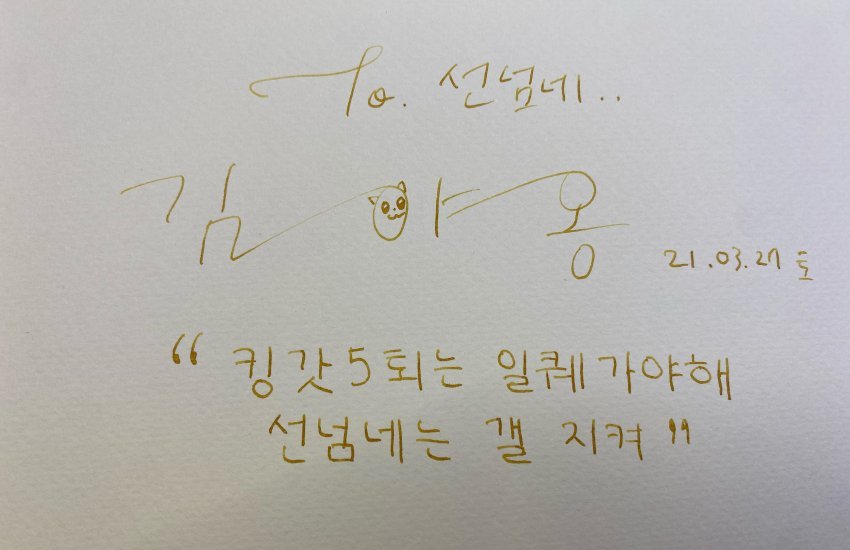 To. 선넘네..
김야옹
21.03.27 토
“킹갓5퇴는 일퀘 가야해
선넘네는 갤 지켜”